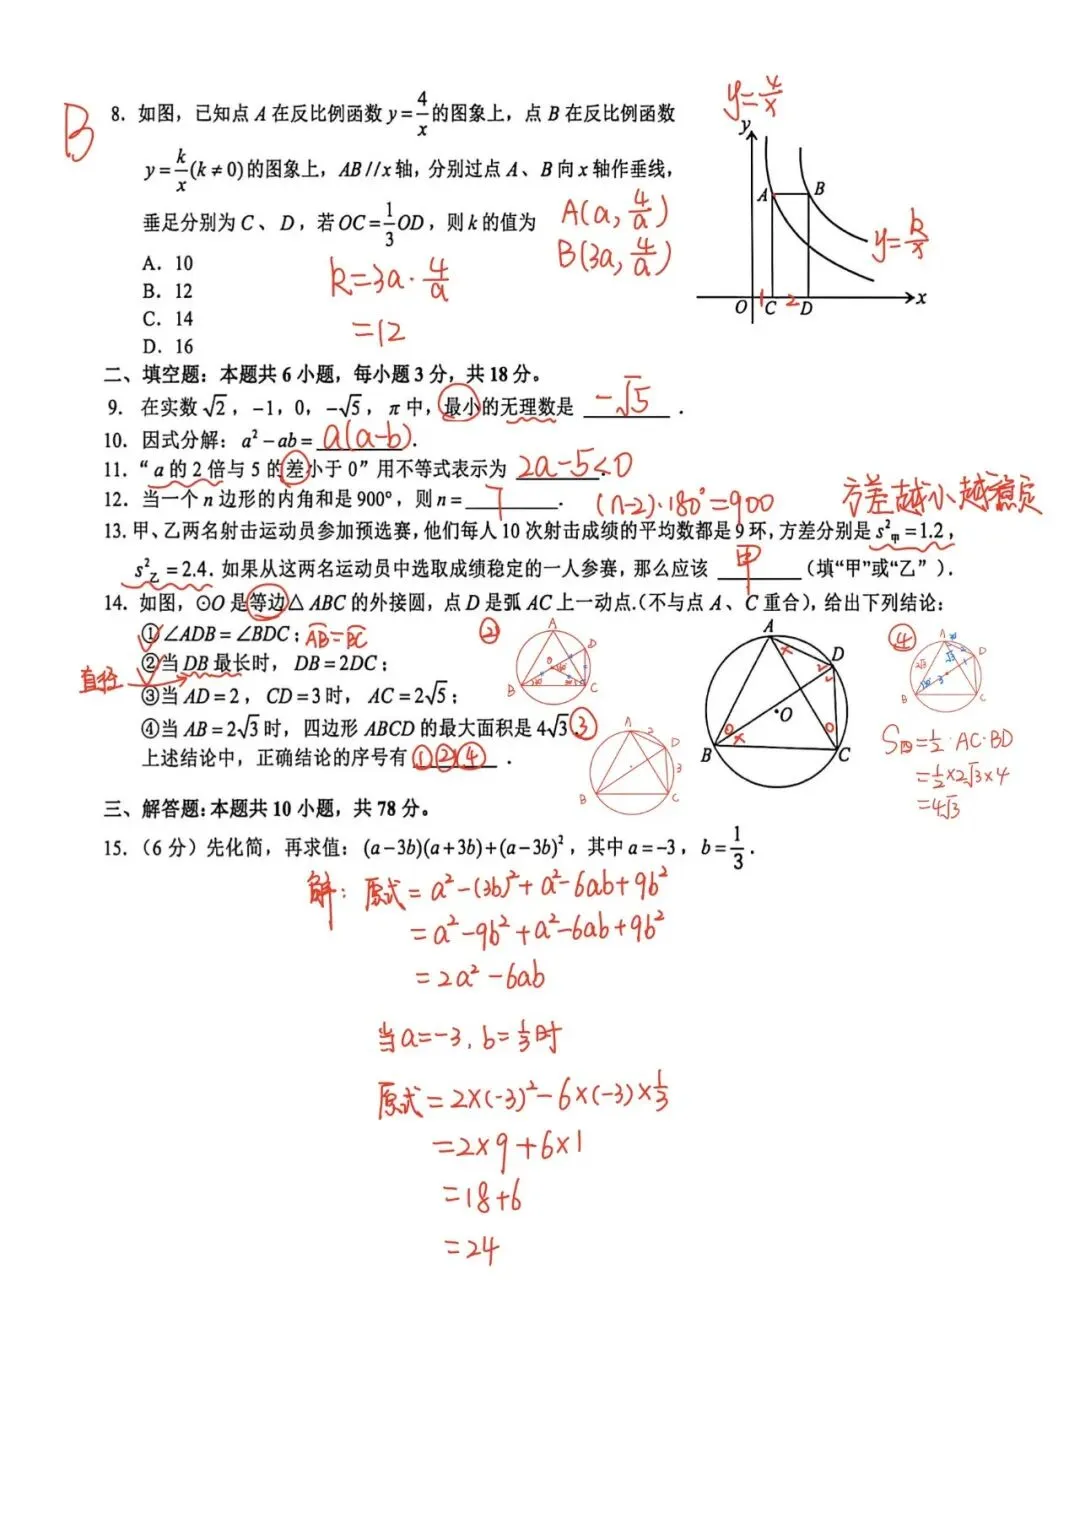 B
8. 如图，已知点 A 在反比例函数 y=4/x 的图象上，点 B 在反比例函数
y=k/x(k≠0)的图象上，AB//x 轴，分别过点 A、B 向 x 轴作垂线，
垂足分别为 C、D，若 OC=1/3OD，则 k 的值为
A(a, 4/a)
B(3a, 4/a)
A. 10
B. 12
C. 14
D. 16
k=3a·4/a
=12
y=4/x
y
A
B
y=k/x
O 1 C 2 D x
二、填空题：本题共 6 小题，每小题 3 分，共 18 分。
9. 在实数 √2，-1，0，-√5，π 中，最小的无理数是 -√5 .
10. 因式分解：a²-ab= a(a-b).
11. “a 的 2 倍与 5 的差小于 0”用不等式表示为 2a-5<0
12. 当一个 n 边形的内角和是 900°，则 n= 7 . (n-2)·180°=900
方差越小越稳定
13. 甲、乙两名射击运动员参加预选赛，他们每人 10 次射击成绩的平均数都是 9 环，方差分别是 s²甲=1.2，
s²乙=2.4. 如果从这两名运动员中选取成绩稳定的一人参赛，那么应该 甲 （填“甲”或“乙”）.
14. 如图，⊙O 是等边△ABC 的外接圆，点 D 是弧 AC 上一动点.（不与点 A、C 重合），给出下列结论：
①∠ADB=∠BDC； AB=BC
②当 DB 最长时，DB=2DC；
直径
③当 AD=2，CD=3 时，AC=2√5；
④当 AB=2√3 时，四边形 ABCD 的最大面积是 4√3.
上述结论中，正确结论的序号有 ①②④ .
②
A
D
O
B
C
③
A
2
D
3
B
C
A
D
O
B
C
④
A
D
2√3
B
C
S四=1/2·AC·BD
=1/2×2√3×4
=4√3
三、解答题：本题共 10 小题，共 78 分。
15.（6 分）先化简，再求值：(a-3b)(a+3b)+(a-3b)²，其中 a=-3，b=1/3.
解：原式=a²-(3b)²+a²-6ab+9b²
=a²-9b²+a²-6ab+9b²
=2a²-6ab
当a=-3，b=1/3时
原式=2×(-3)²-6×(-3)×1/3
=2×9+6×1
=18+6
=24